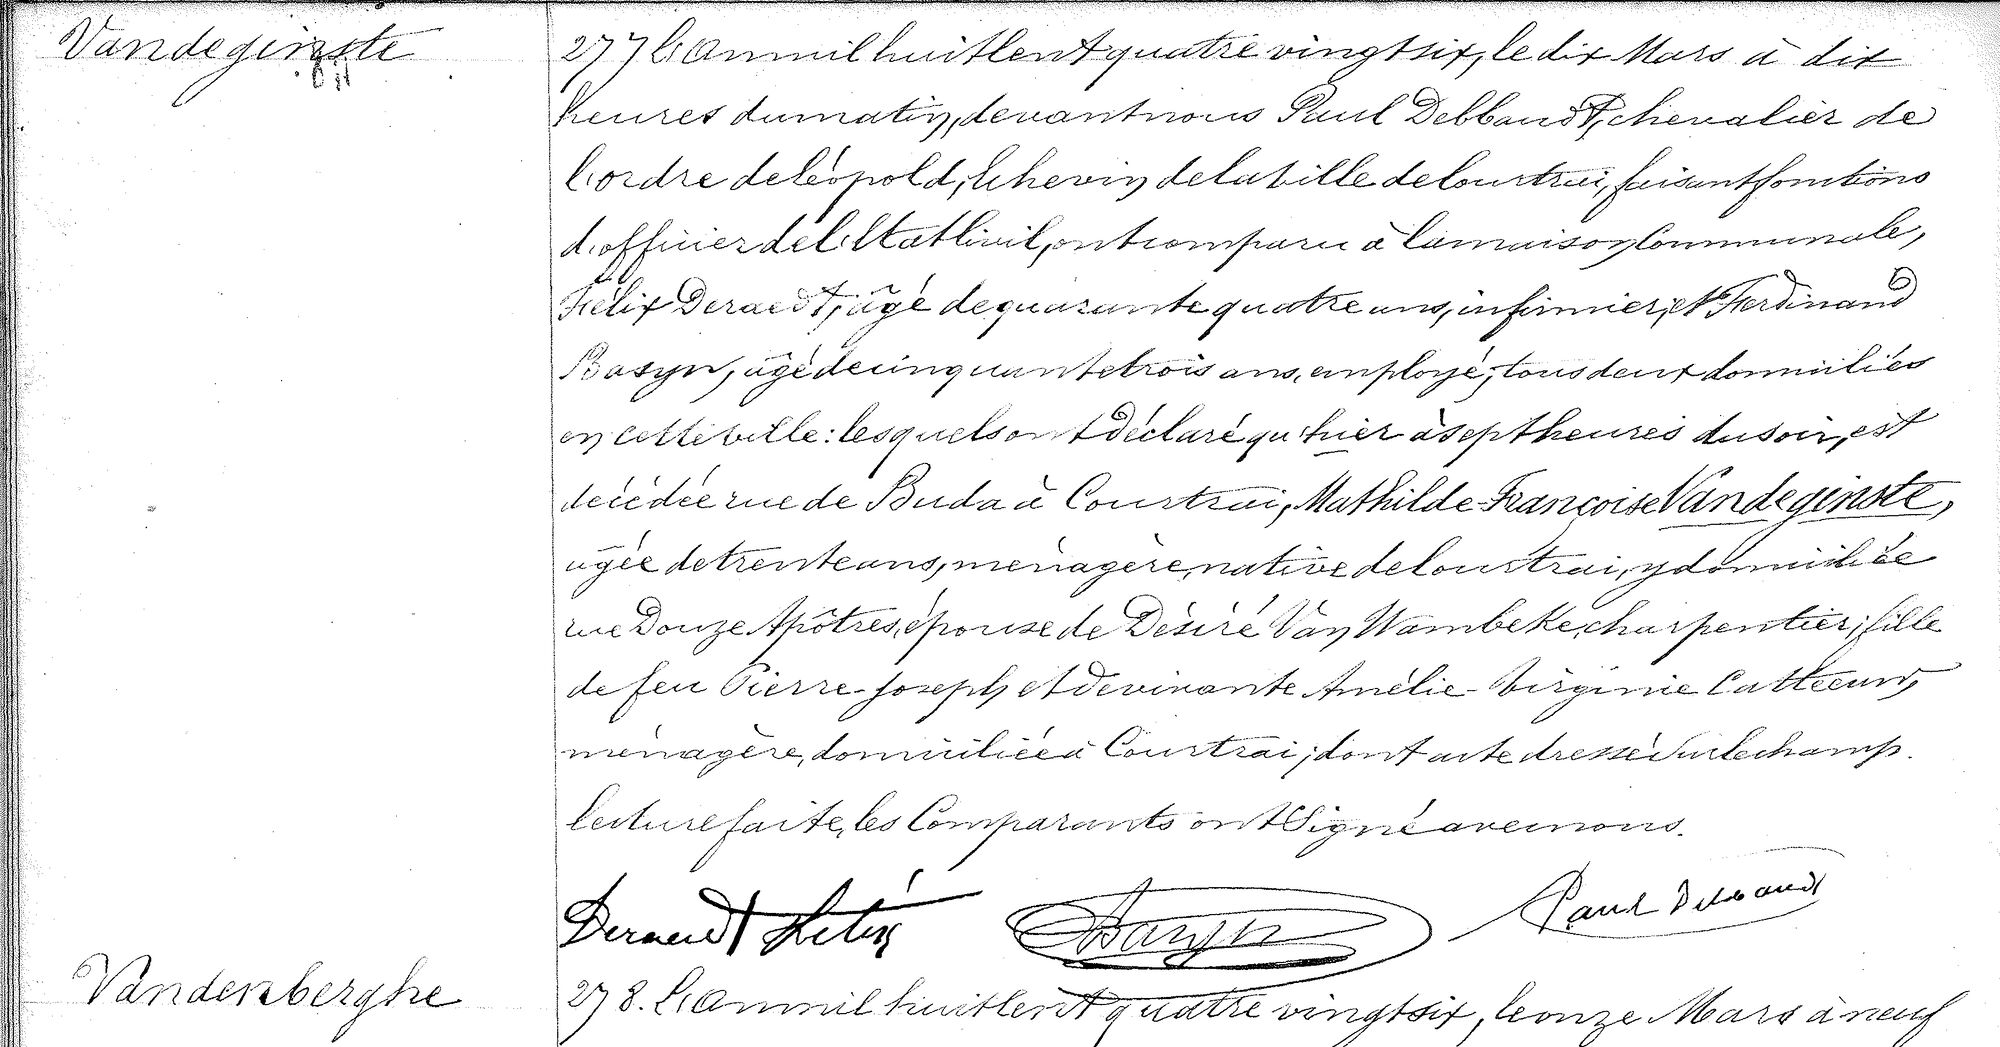 Vandeginste
277 L'an mil huit Cent quatre vingt six, le dix Mars à dix
heures du matin, devant nous Paul Debbaudt, chevalier de
l'ordre de Léopold, Echevin de la ville de Courtrai, faisant fonctions
d'officier de l'Etat Civil, ont comparu à la maison Communale,
Félix Deraedt, âgé de quarante quatre ans, infirmier, et Ferdinand
Basyn, âgé de cinquante trois ans, employé, tous deux domiciliés
en cette ville: lesquels ont déclaré qu'hier à sept heures du soir, est
décédée rue de Buda à Courtrai, Mathilde-Françoise Vandeginste,
âgée de trente ans, ménagère, native de Courtrai, y domiciliée
rue Douze Apôtres, épouse de Désiré Van Wambeke, charpentier; fille
de feu Pierre-Joseph et de vivante Amélie-Virginie Catteeuw,
ménagère, domiciliée à Courtrai; dont acte dressé sur le champ.
Lecture faite, les Comparants ont Signé avec nous.
Deraedt Felix Basyn Paul Debbaudt
Vandenberghe
278. L'an mil huit Cent quatre vingt six, le onze Mars à neuf